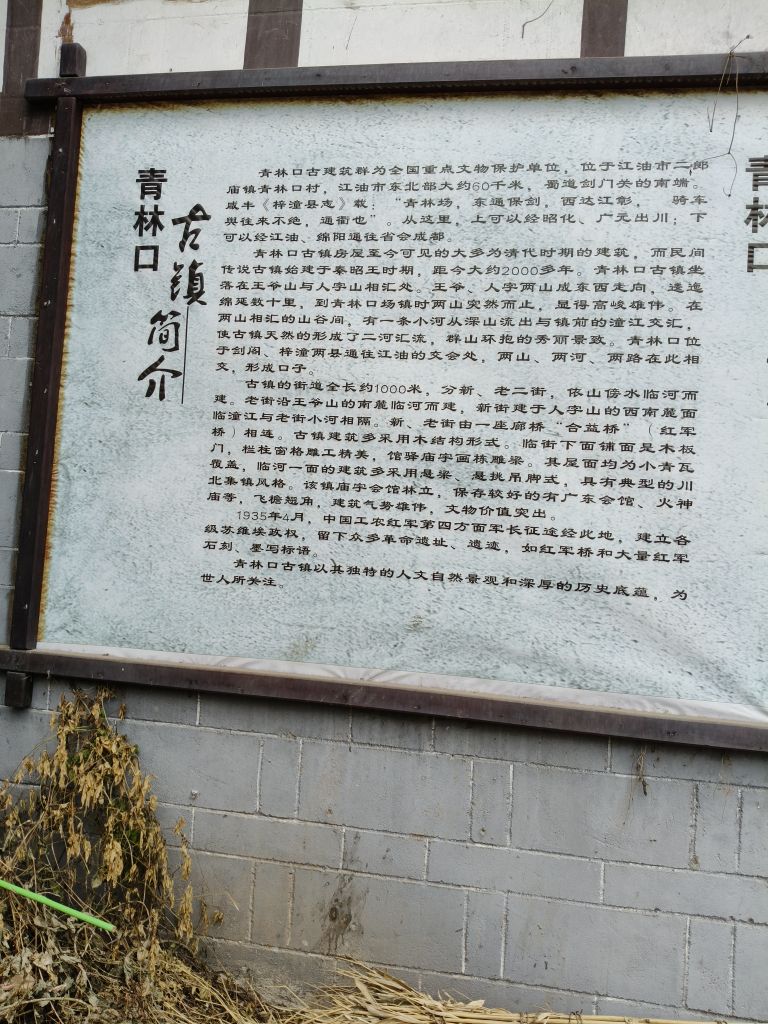 青林口
古镇简介
青林口古建筑群为全国重点文物保护单位，位于江油市二郎
庙镇青林口村，江油市东北部大约60千米，蜀道剑门关的南端。
咸丰《梓潼县志》载：“青林场，东通保剑，西达江彰， 骑车
舆往来不绝，通衢也”。从这里，上可以经昭化、广元出川；下
可以经江油、绵阳通往省会成都。
青林口古镇房屋至今可见的大多为清代时期的建筑，而民间
传说古镇始建于秦昭王时期，距今大约2000多年。青林口古镇坐
落在王爷山与人字山相汇处。王爷、人字两山成东西走向，逶迤
绵延数十里，到青林口场镇时两山突然而止，显得高峻雄伟。在
两山相汇的山谷间，有一条小河从深山流出与镇前的潼江交汇，
使古镇天然的形成了二河汇流，群山环抱的秀丽景致。青林口位
于剑阁、梓潼两县通往江油的交会处，两山、两河、两路在此相
交，形成口子。
古镇的街道全长约1000米，分新、老二街，依山傍水临河而
建。老街沿王爷山的南麓临河而建，新街建于人字山的西南麓面
临潼江与老街小河相隔。新、老街由一座廊桥“合益桥”（红军
桥）相连。古镇建筑多采用木结构形式。临街下面铺面是木板
门，栏柱窗格雕工精美，馆驿庙宇画栋雕梁。其屋面均为小青瓦
覆盖，临河一面的建筑多采用悬梁、悬挑吊脚式，具有典型的川
北集镇风格。该镇庙宇会馆林立，保存较好的有广东会馆、火神
庙等，飞檐短角，建筑气势雄伟，文物价值突出。
1935年4月，中国工农红军第四方面军长征途经此地，建立各
级苏维埃政权，留下众多革命遗址、遗迹，如红军桥和大量红军
石刻、墨写标语。
青林口古镇以其独特的人文自然景观和深厚的历史底蕴，为
世人所关注。
青林口